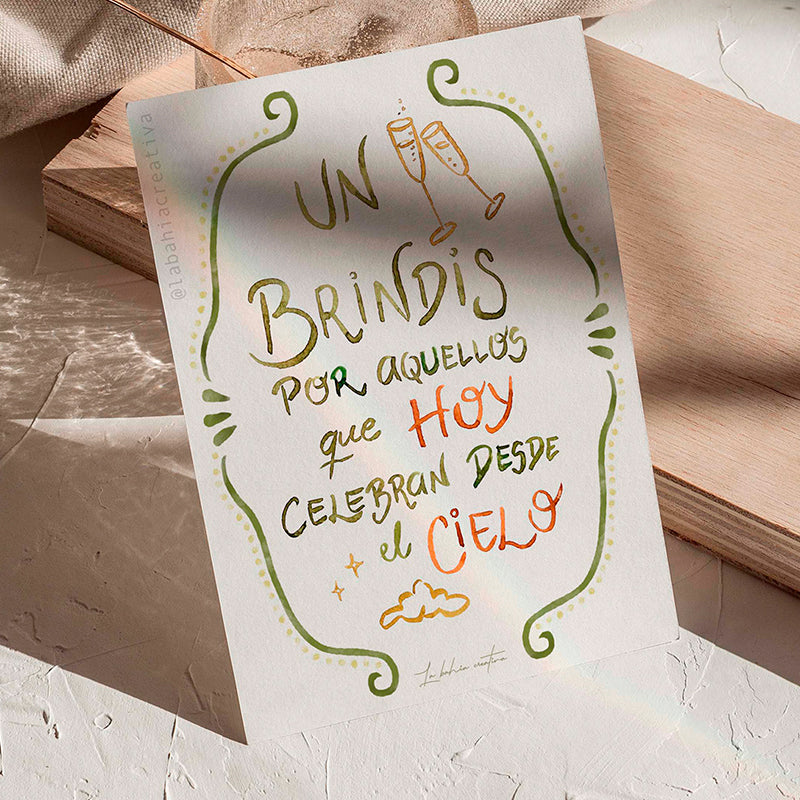 @labahiacreativa
UN
BRINDIS
POR AQUELLOS
que HOY
CELEBRAN DESDE
el CIELO
La bahia creativa